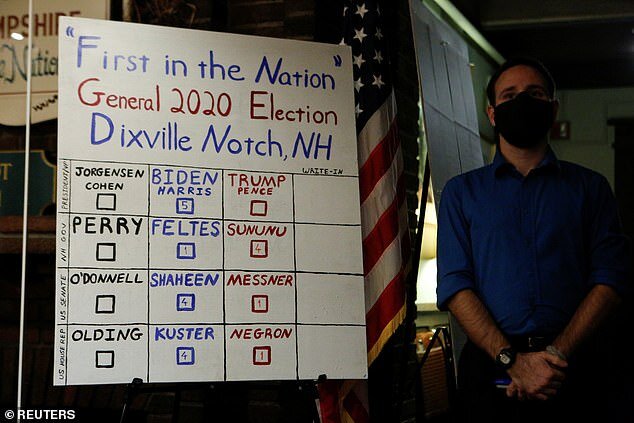 SHIRE
"First in the Nation"
General 2020 Election
Dixville Notch, NH
PRESIDENT/VP
JORGENSEN
COHEN
BIDEN
HARRIS
5
TRUMP
PENCE
WRITE-IN
NH GOV
PERRY
FELTES
1
SUNUNU
4
US SENATE
O'DONNELL
SHAHEEN
4
MESSNER
1
US HOUSE REP
OLDING
KUSTER
4
NEGRON
1
© REUTERS